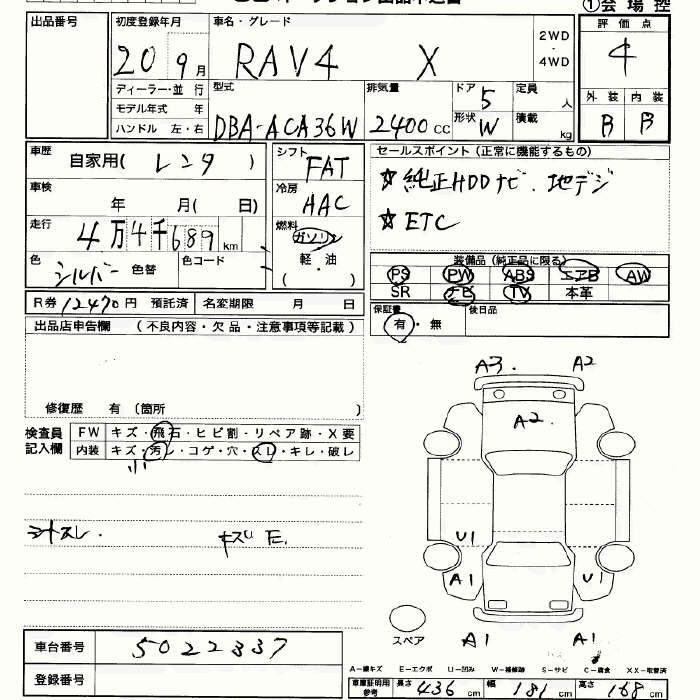 ①会場控
出品番号 初度登録年月 車名・グレード 評価点
20 9月 RAV4 X 2WD・4WD 4
ディーラー・並行 型式 排気量 ドア 5 定員 人 外装 内装
モデル年式 年
ハンドル 左・右 DBA-ACA36W 2400cc 形状 W 積載 kg B B
車歴 自家用(レンタ) シフト FAT セールスポイント(正常に機能するもの)
車検 年 月(日) 冷房 AAC ☆純正HDDナビ.地デジ
走行 4万4千689km 燃料 ガソリン ☆ETC
色 シルバー 色替 色コード 軽・油 ( ) 装備品(純正品に限る)
PS PW ABS エアB AW
SR TV 本革
R券 12470円 預託済 名変期限 月 日 保証書 有・無 後日品
出品店申告欄 (不良内容・欠品・注意事項等記載)
A3. A2
A2
修復歴 有(箇所 )
検査員 FW キズ・飛石・ヒビ割・リペア跡・X要
記入欄 内装 キズ・汚レ・コゲ・穴・スレ・キレ・破レ
小
シートスレ. キズ E.
U1
A1 U1
スペア A1 A1
車台番号 5022337
A-線キズ E-エクボ U-凹み W-補修跡 S-サビ C-腐食 XX-取替済
登録番号 車庫証明用参考 長さ 436cm 幅 181cm 高さ 168cm